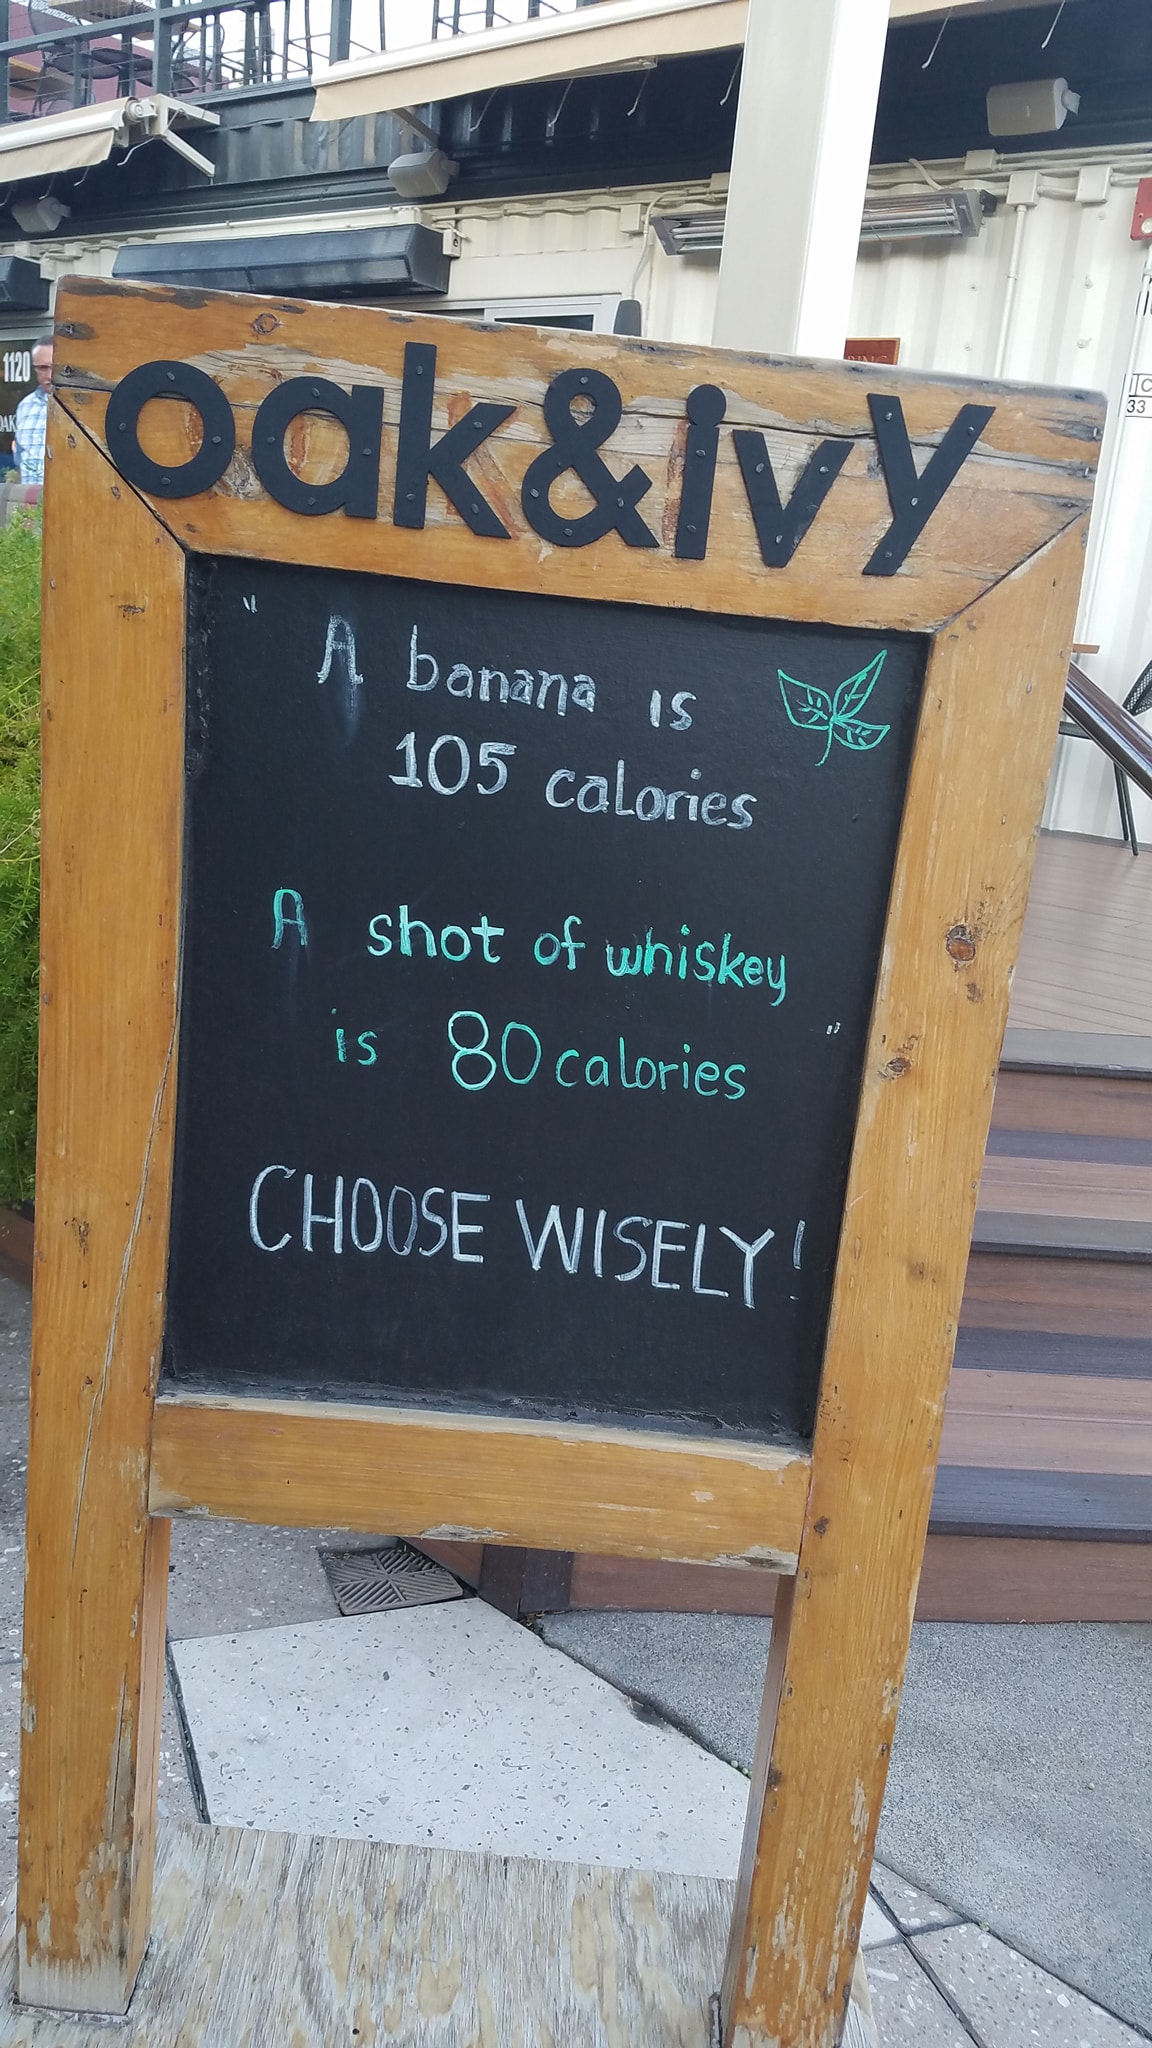 oak&ivy
" A banana is
105 calories
A shot of whiskey
is 80 calories "
CHOOSE WISELY!
1120
33